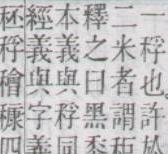 一稃也。許於
二米者謂秬
釋之曰黑黍
本義與稃同
經義與字義
秠稃𥢶穅四